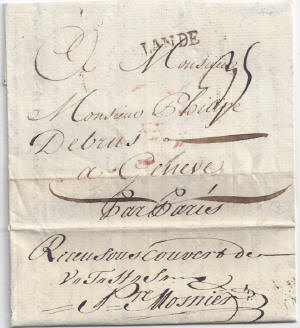 LANDE
A Monsieur
35
Monsieur Philipe
Debrus
a Geneve
Par Paris
Recu sous couvert de
V Tr H Sr
Pre Mosnier